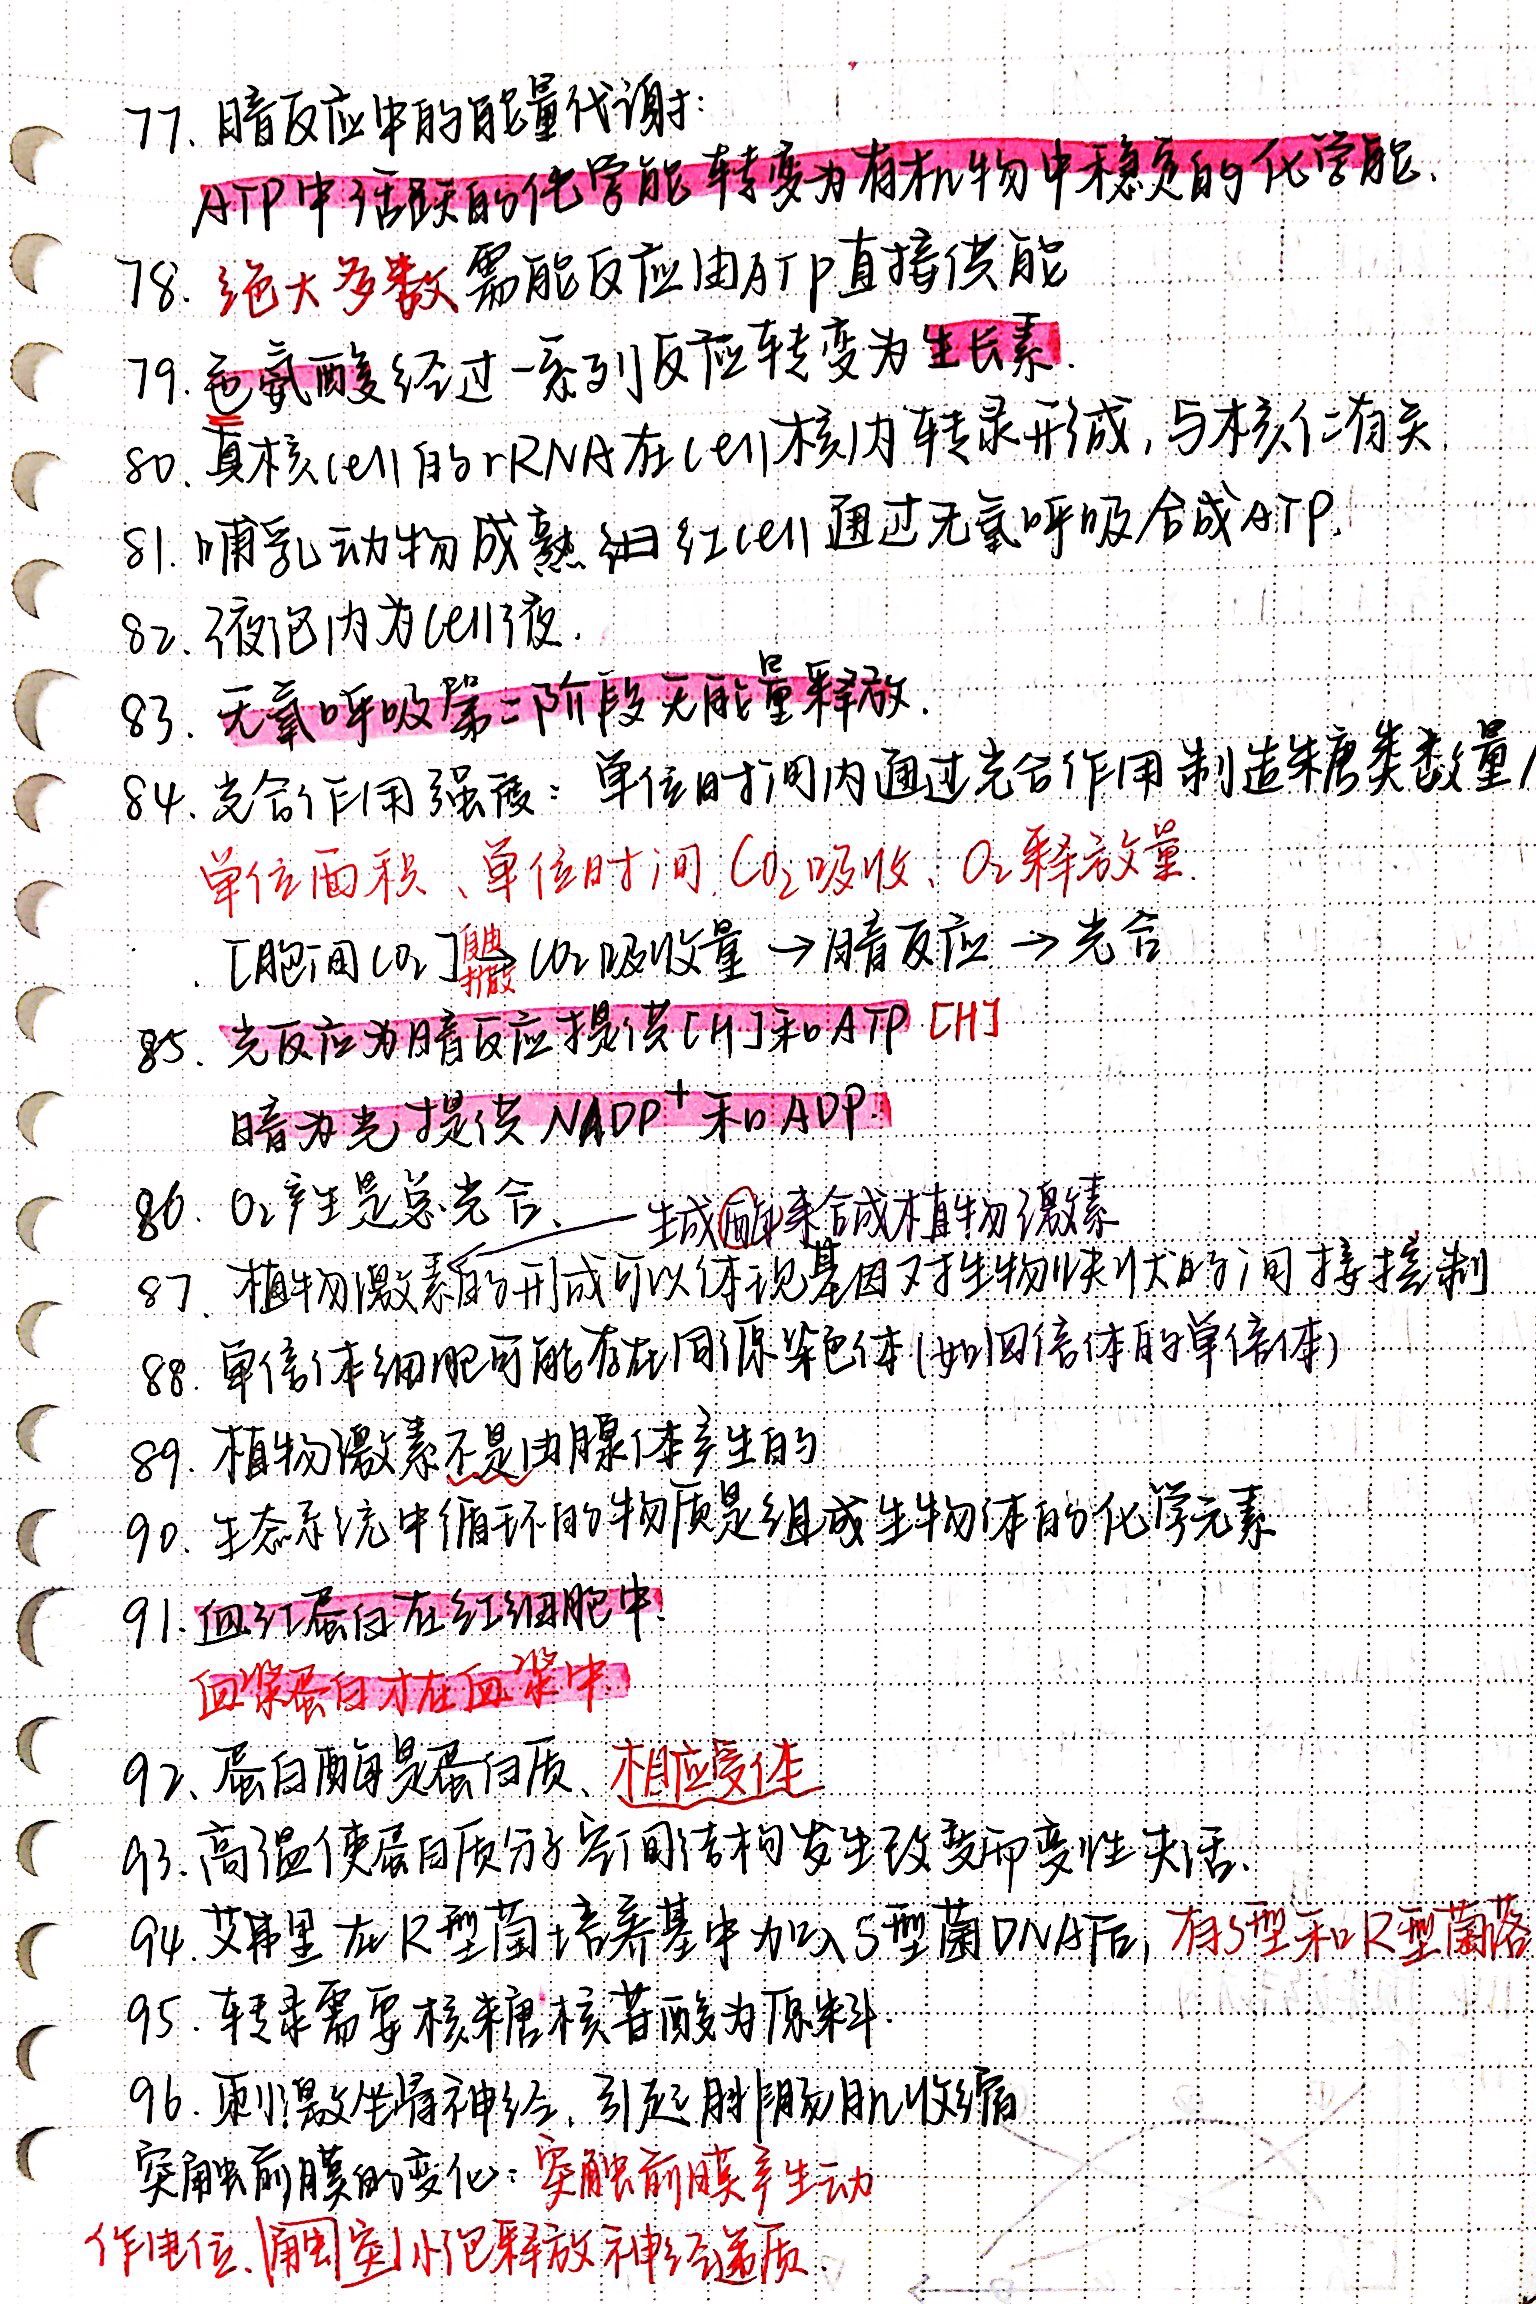 77. 暗反应中的能量代谢:
ATP中活跃的化学能转变为有机物中稳定的化学能.
78. 绝大多数需能反应由ATP直接供能
79. 色氨酸经过一系列反应转变为生长素.
80. 真核cell的rRNA在cell核内转录形成,与核仁有关.
81. 哺乳动物成熟细红cell通过无氧呼吸合成ATP.
82. 液泡内为cell液.
83. 无氧呼吸第二阶段无能量释放.
84. 光合作用强度: 单位时间内通过光合作用制造糖类数量/
单位面积、单位时间CO₂吸收、O₂释放量.
[胞间CO₂] 自由扩散→ CO₂吸收量→暗反应→光合
85. 光反应为暗反应提供[H]和ATP [H]
暗为光提供NADP⁺和ADP.
86. O₂产生是总光合. 生成酶来合成植物激素
87. 植物激素的形成可以体现基因对生物性状的间接控制
88. 单倍体细胞可能存在同源染色体(如四倍体的单倍体)
89. 植物激素不是由腺体产生的
90. 生态系统中循环的物质是组成生物体的化学元素
91. 血红蛋白在红细胞中.
血浆蛋白才在血浆中.
92. 蛋白酶是蛋白质、相应受体
93. 高温使蛋白质分子空间结构发生改变而变性失活.
94. 艾弗里在R型菌培养基中加入S型菌DNA后,有S型和R型菌落
95. 转录需要核糖核苷酸为原料.
96. 刺激坐骨神经,引起腓肠肌收缩
突触前膜的变化: 突触前膜产生动
作电位、触突小泡释放神经递质.